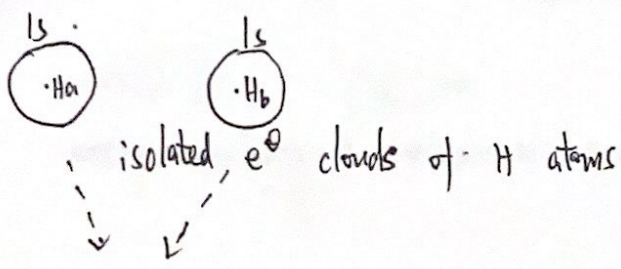 1s 1s
·Ha ·Hb
isolated e⊖ clouds of H atoms